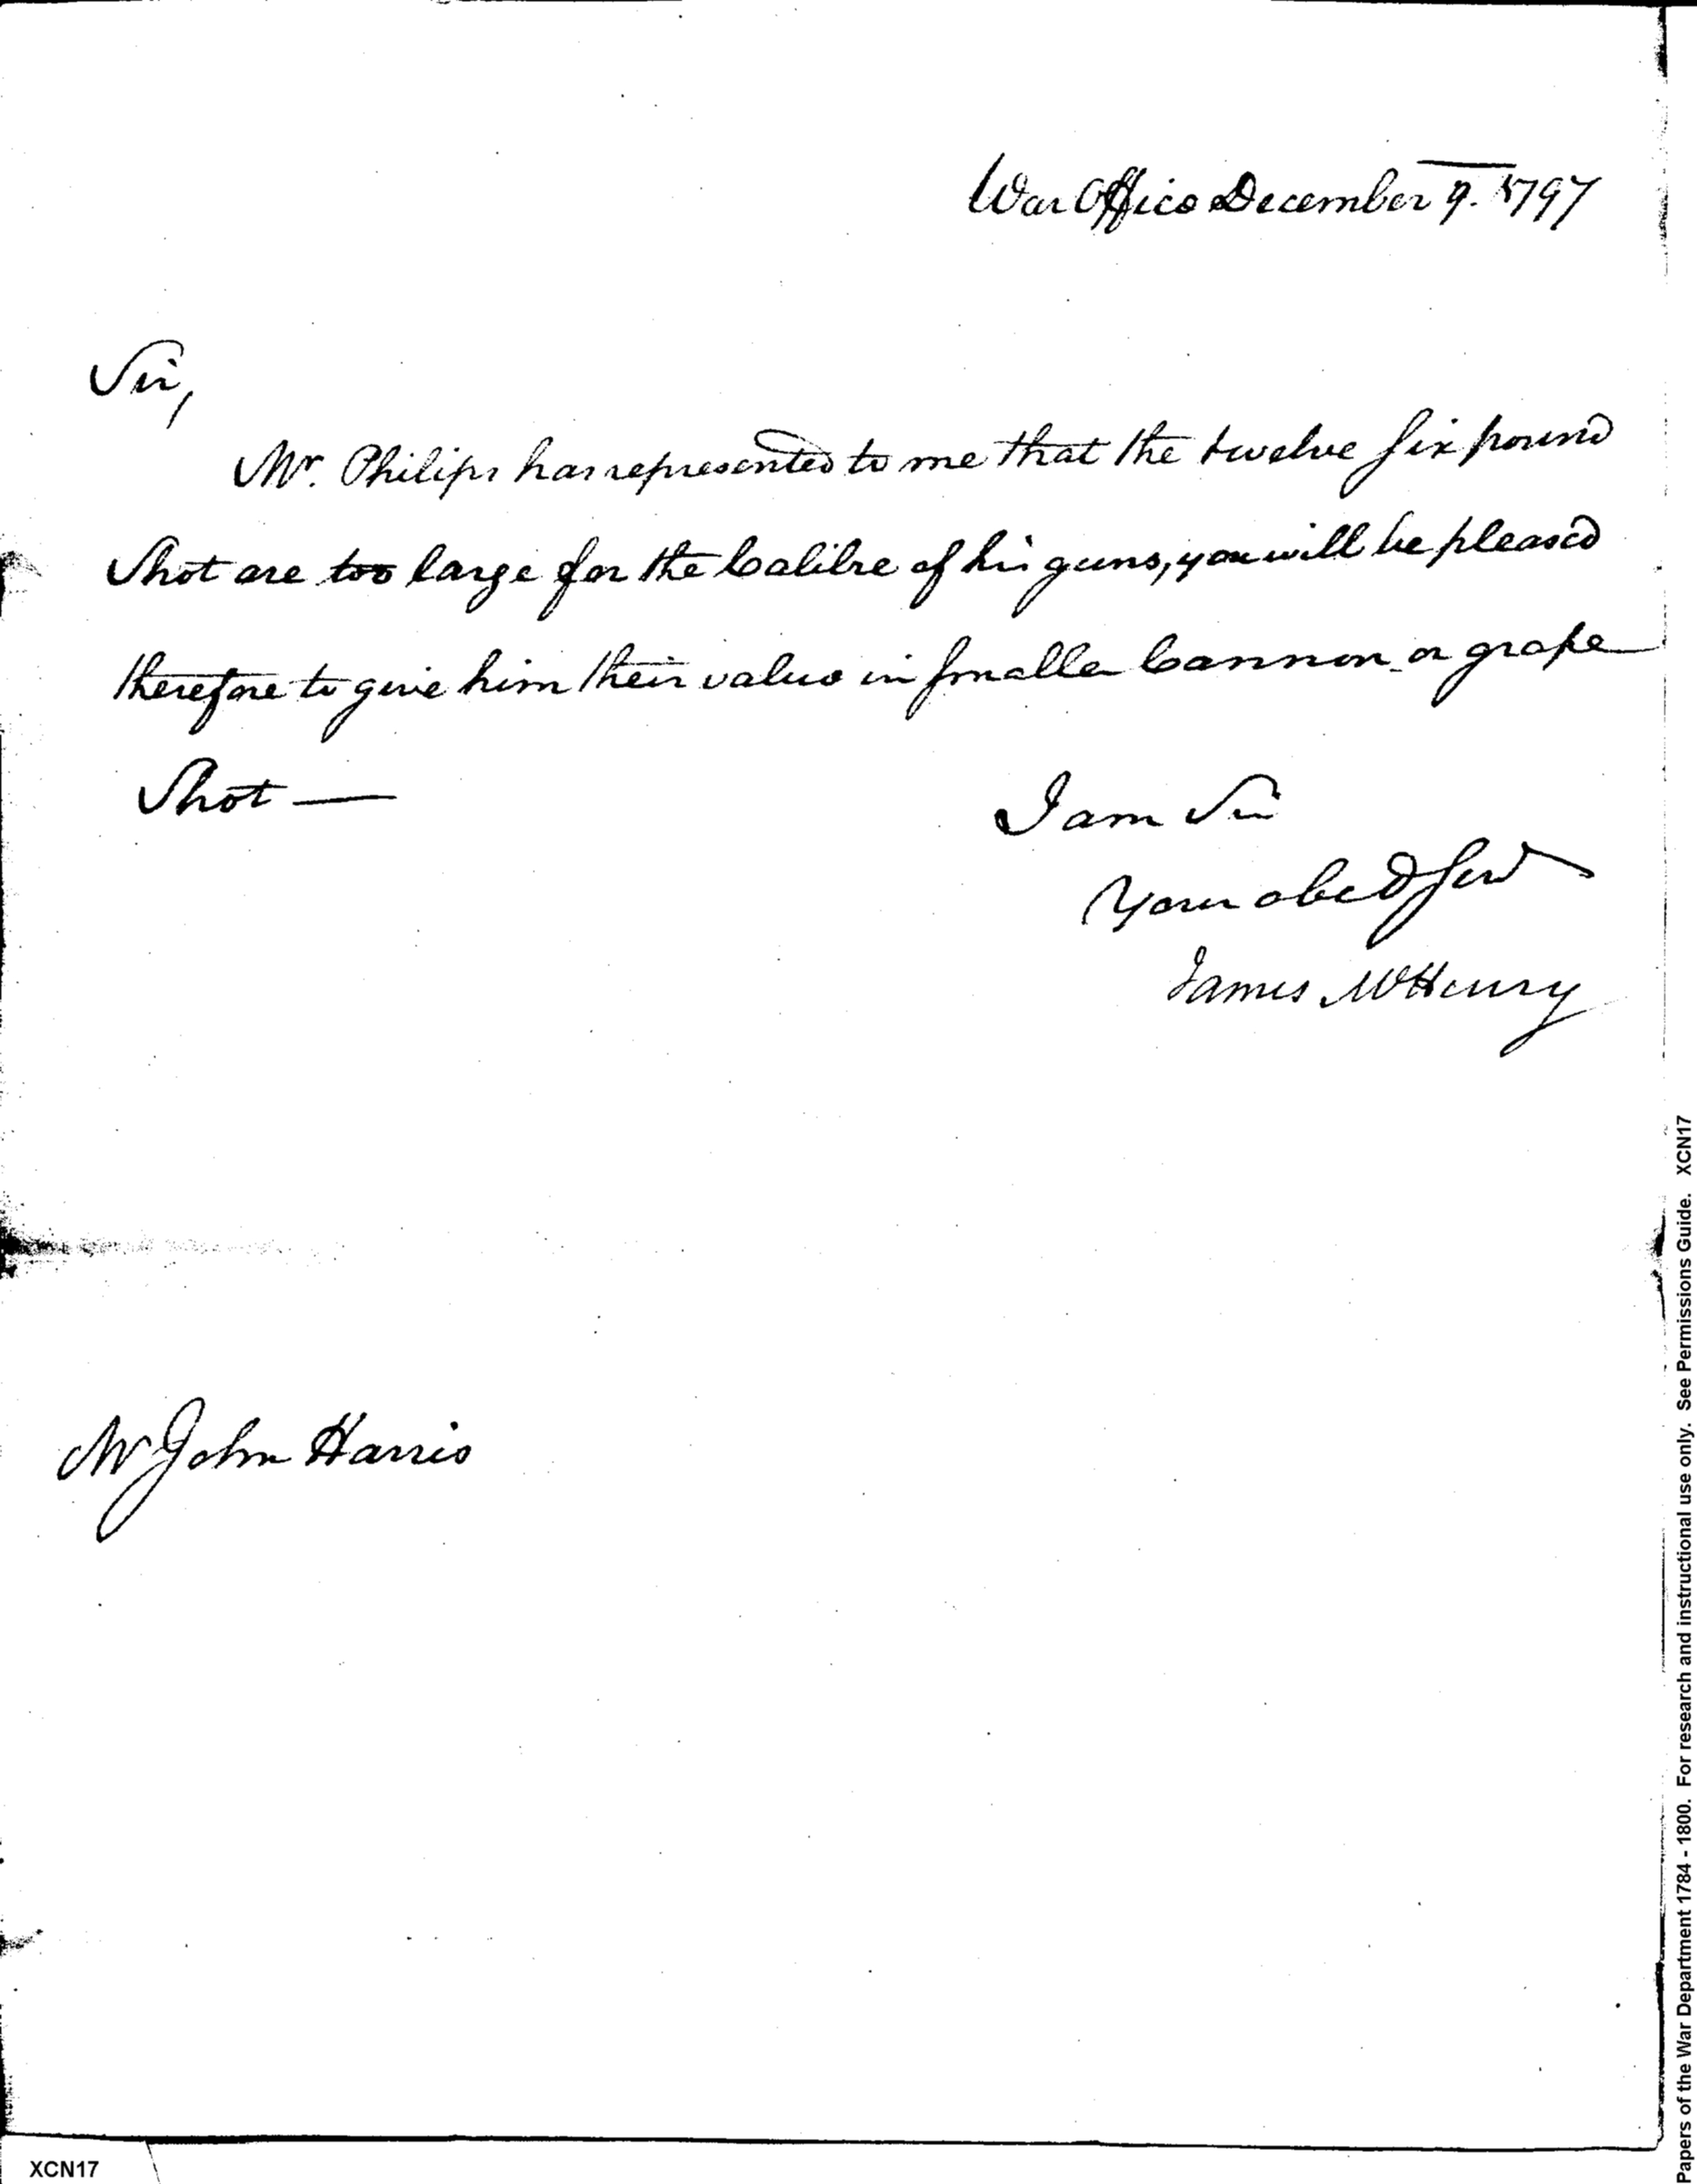 War Office December 9. 1797
Sir,
Mr. Philips has represented to me that the twelve six pound
Shot are too large for the Calibre of his guns, you will be pleased
therefore to give him their value in smaller Cannon or grape
Shot —
I am Sir
Your obed Servt
James McHenry
Mr John Harris
Papers of the War Department 1784 - 1800. For research and instructional use only. See Permissions Guide. XCN17
XCN17